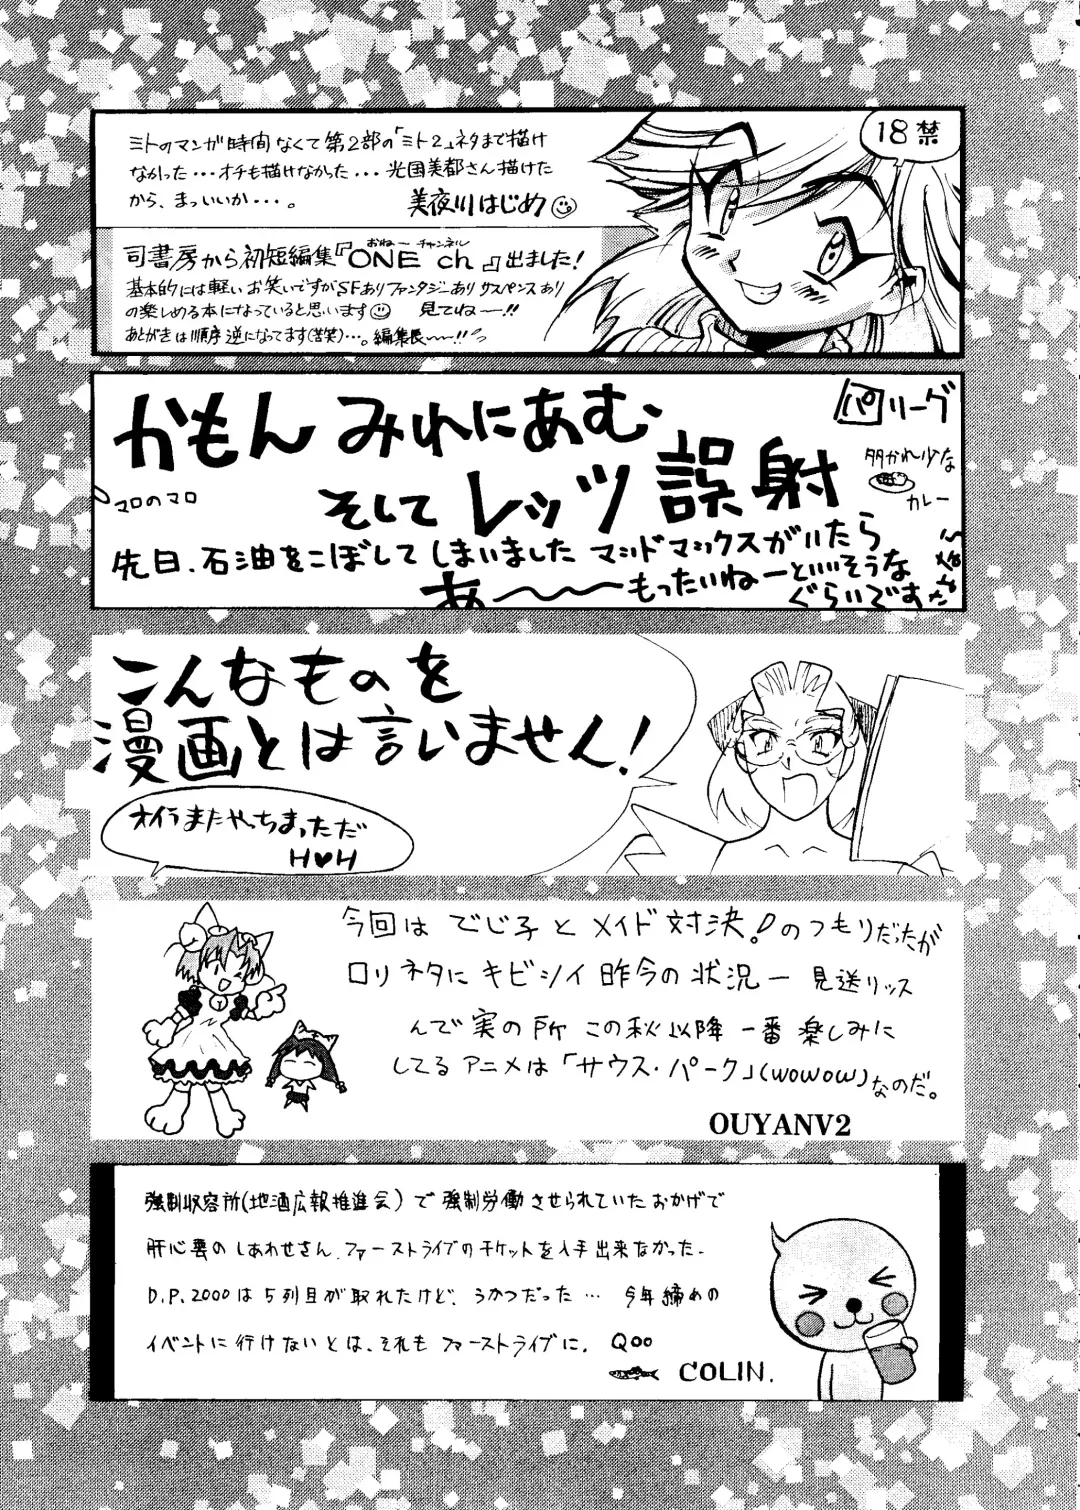 ミトのマンガ時間なくて第2部の「ミト2」ネタまで描け
なかった・・・オチも描けなかった・・・光国美都さん描けた
から、まっいいか・・・。 美夜川はじめ
18禁
司書房から初短編集『ONE ch』出ました!
おねー チャンネル
基本的には軽いお笑いですがSFありファンタジーありサスペンスあり
の楽しめる本になっていると思います 見てねー!!
あとがきは順序逆になってます(苦笑)…。編集長〜〜!!
かもん みれにあむ
パリーグ
そして レッツ 誤射
マロのマロ
多かれ少な
カレー
先日、石油をこぼしてしまいました マッドマックスがいたら
あ〜〜〜もったいねーといいそうな
ぐらいです
こんなものを
漫画とは言いません!
オイラまたやっちまっただ
H♥H
今回は でじ子と メイド 対決!のつもりだったが
ロリネタに キビシイ 昨今の 状況ー 見送リッス
んで 実の所 この秋以降 一番 楽しみに
してる アニメは「サウス・パーク」(WOWOW)なのだ。
OUYANV2
強制収容所(地酒広報推進会)で 強制労働させられていたおかげで
肝心要の しあわせさん、ファーストライブのチケットを入手出来なかった.
D.P.2000は5列目が取れたけど、うかつだった… 今年締めの
イベントに行けないとは、それもファーストライブに. Qoo
COLIN.